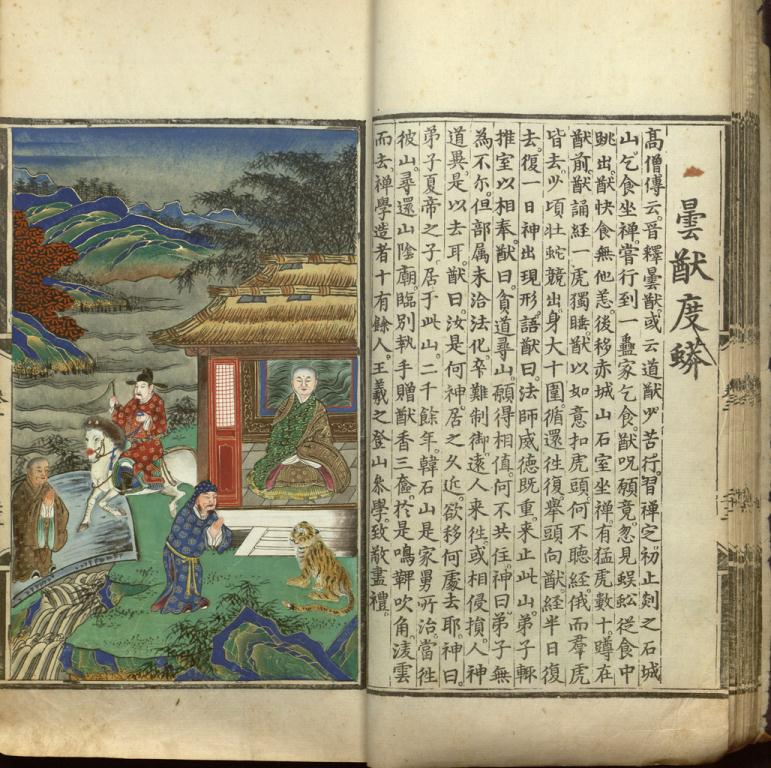 曇猷度蟒
高僧傳云。晉釋曇猷。或云道猷。少苦行。習禪定。初止剡之石城
山。乞食坐禪。嘗行到一蠱家乞食。猷呪願竟。忽見蜈蚣從食中
跳出。猷快食無他恙。後移赤城山石室坐禪。有猛虎數十。蹲在
猷前。猷誦經。一虎獨睡。猷以如意扣虎頭。何不聽經。俄而羣虎
皆去。少頃壯蛇競出。身大十圍。循還往復。舉頭向猷。經半日復
去。復一日神出現形。語猷曰。法師威德既重。来止此山。弟子輒
推室以相奉。猷曰。貧道尋山。願得相值。何不共住。神曰。弟子無
為不尒。但部属未洽法化。卒難制御。遠人來往。或相侵損。人神
道異。是以去耳。猷曰。汝是何神。居之久近。欲移何處去耶。神曰。
弟子夏帝之子。居于此山。二千餘年。韓石山是家舅所治。當往
彼山。尋還山陰廟。臨別執手。贈猷香三奩。於是鳴鞞吹角。淩雲
而去。禪學造者十有餘人。王羲之登山參學。致敬畫禮。